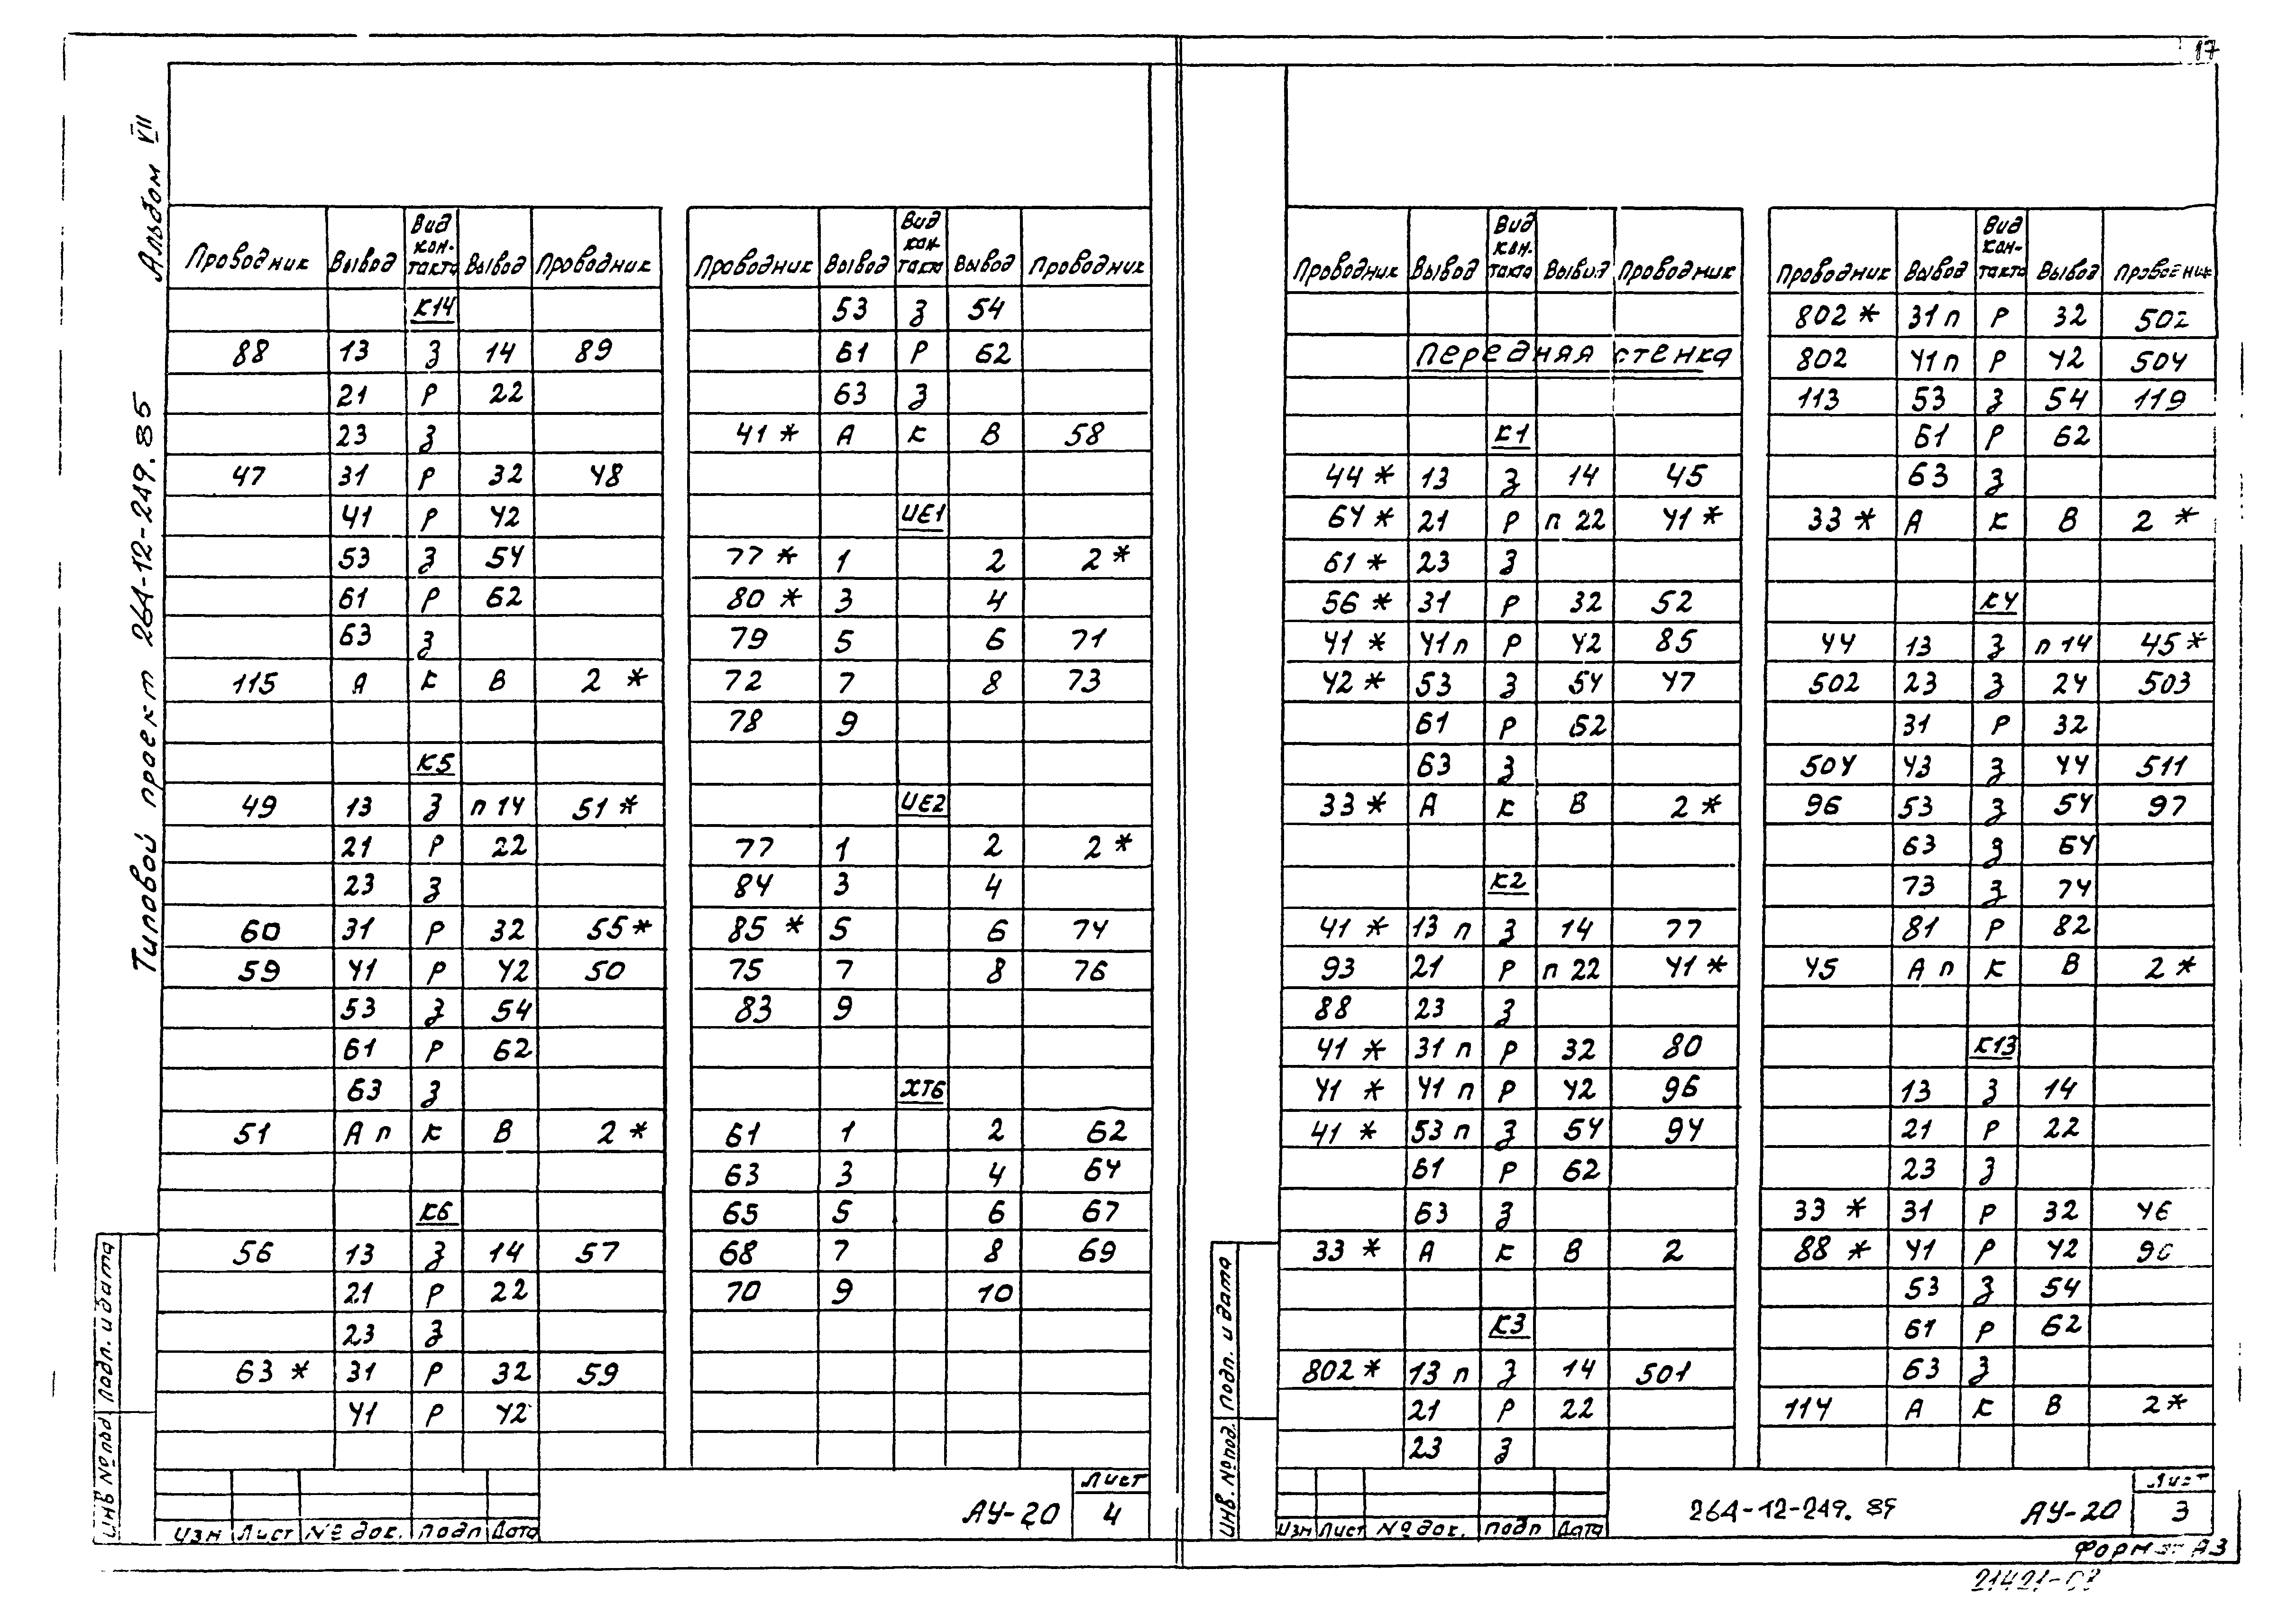 17
Альбом VII
Типовой проект 264-12-249.85
Проводник Вывод Вид кон-такта Вывод Проводник
К14
88 13 З 14 89
21 Р 22
23 З
47 31 Р 32 48
41 Р 42
53 З 54
61 Р 62
63 З
115 А К В 2 *
К5
49 13 З п 14 51 *
21 Р 22
23 З
60 31 Р 32 55 *
59 41 Р 42 50
53 З 54
61 Р 62
63 З
51 А п К В 2 *
К6
56 13 З 14 57
21 Р 22
23 З
63 * 31 Р 32 59
41 Р 42
Проводник Вывод Вид кон-такта Вывод Проводник
53 З 54
61 Р 62
63 З
41 * А К В 58
UE1
77 * 1 2 2 *
80 * 3 4
79 5 6 71
72 7 8 73
78 9
UE2
77 1 2 2 *
84 3 4
85 * 5 6 74
75 7 8 76
83 9
XT6
61 1 2 62
63 3 4 64
65 5 6 67
68 7 8 69
70 9 10
Инв № подл Подп. и дата
Изм Лист № док. Подп Дата
АУ-20
Лист
4
Проводник Вывод Вид кон-такта Вывод Проводник
Передняя стенка
К1
44 * 13 З 14 45
64 * 21 Р п 22 41 *
61 * 23 З
56 * 31 Р 32 52
41 * 41 п Р 42 85
42 * 53 З 54 47
61 Р 62
63 З
33 * А К В 2 *
К2
41 * 13 п З 14 77
93 21 Р п 22 41 *
88 23 З
41 * 31 п Р 32 80
41 * 41 п Р 42 96
41 * 53 п З 54 94
61 Р 62
63 З
33 * А К В 2
К3
802 * 13 п З 14 501
21 Р 22
23 З
Проводник Вывод Вид кон-такта Вывод Проводник
802 * 31 п Р 32 502
802 41 п Р 42 504
113 53 З 54 119
61 Р 62
63 З
33 * А К В 2 *
К4
44 13 З п 14 45 *
502 23 З 24 503
31 Р 32
504 43 З 44 511
96 53 З 54 97
63 З 64
73 З 74
81 Р 82
45 А п К В 2 *
К13
13 З 14
21 Р 22
23 З
33 * 31 Р 32 46
88 * 41 Р 42
53 З 54
61 Р 62
63 З
114 А К В 2 *
Инв. № подл. Подп. и дата
Изм Лист № док. Подп Дата
264-12-249. 89
АУ-20
Лист
3
Формат А3